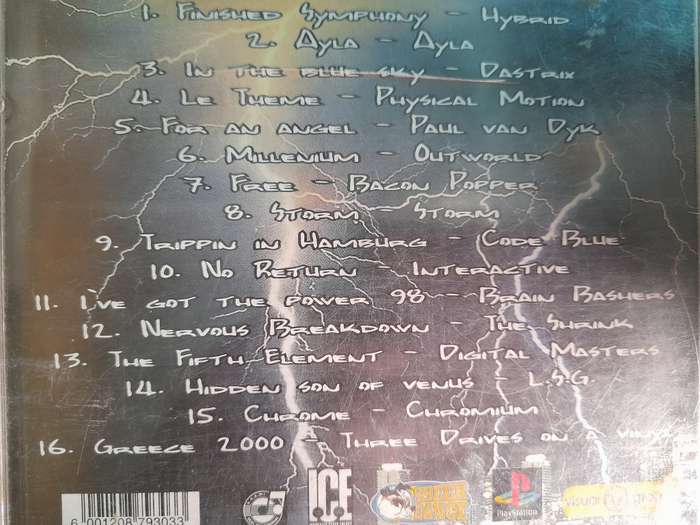 1. Finished Symphony - Hybrid
2. Ayla - Ayla
3. In the blue sky - Dastrix
4. Le Theme - Physical Motion
5. For an angel - Paul van Dyk
6. Millenium - Outworld
7. Free - Bacon Popper
8. Storm - Storm
9. Trippin in Hamburg - Code Blue
10. No Return - Interactive
11. I've got the power 98 - Brain Bashers
12. Nervous Breakdown - The Shrink
13. The Fifth Element - Digital Masters
14. Hidden son of venus - L.S.G.
15. Chrome - Chromium
16. Greece 2000 - Three Drives on a vinyl
I.C.E
PlayStation
6 001208 793033